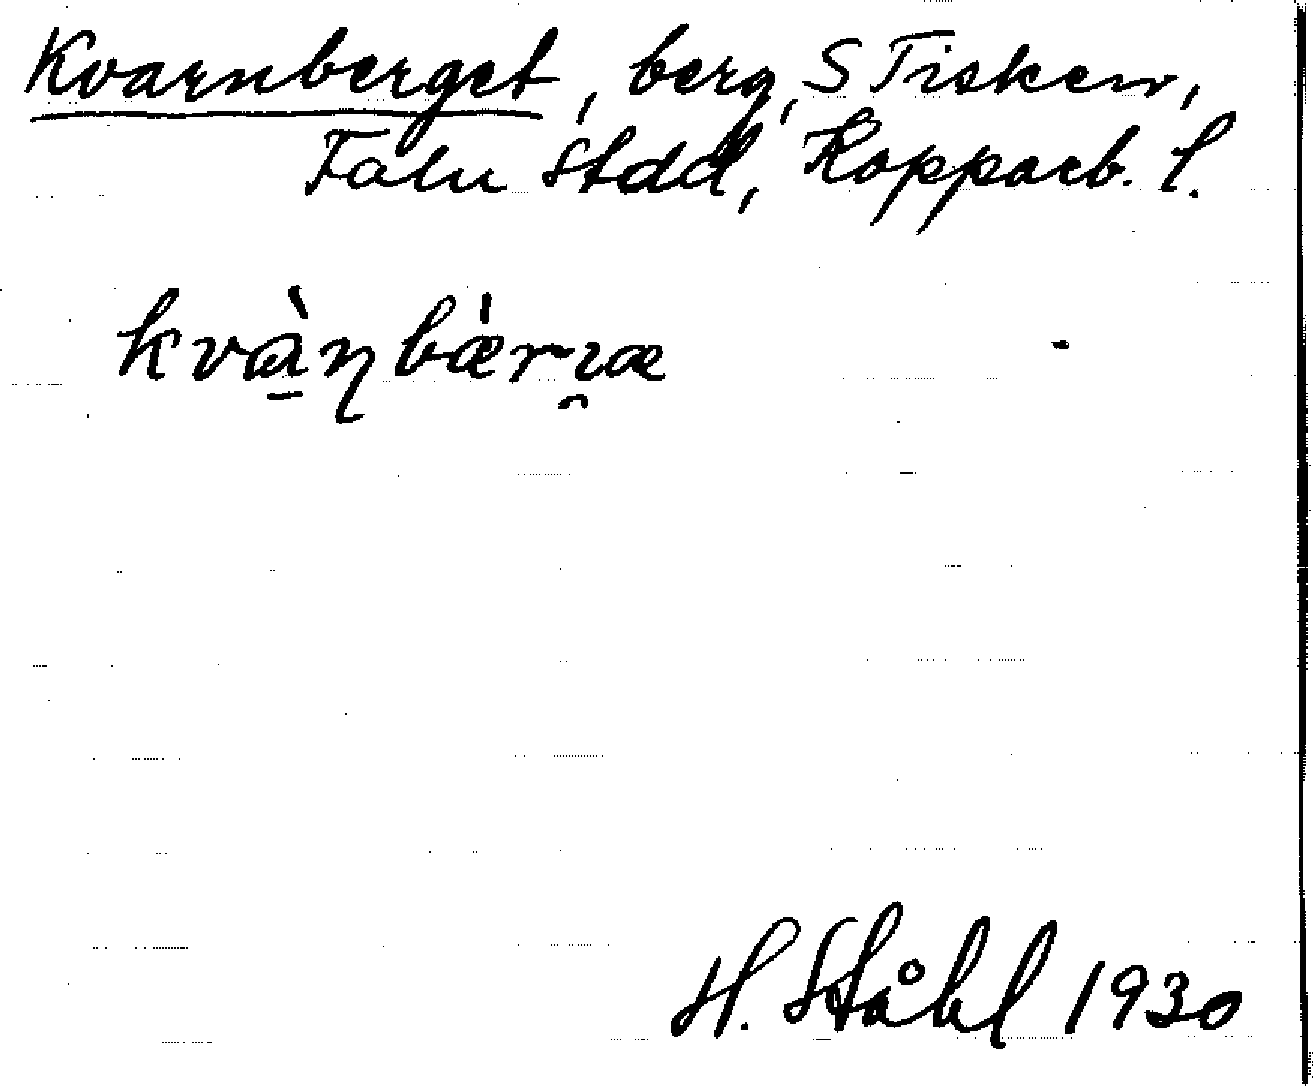 Kvarnberget, berg, S Tisken,
Falu stad, Kopparb. l.
kvàṇbærı̯æ
H. Ståhl 1930